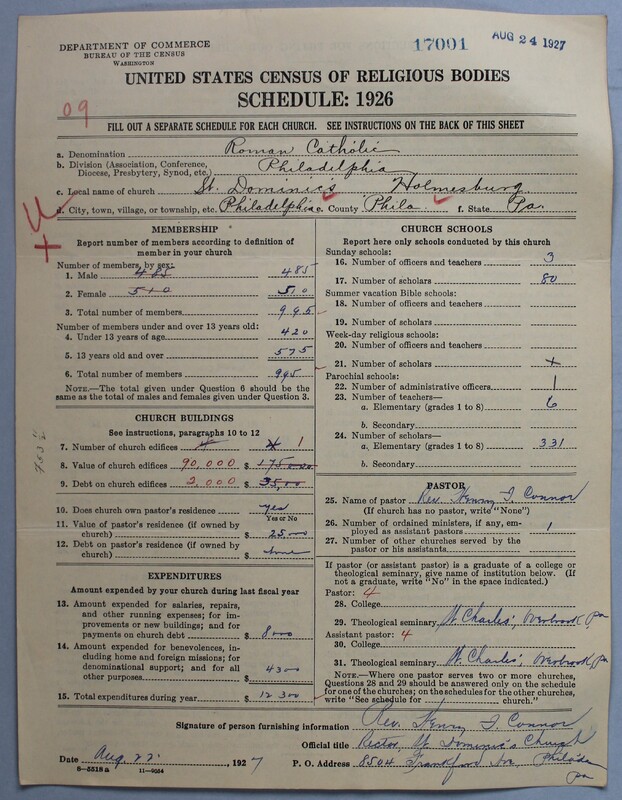 DEPARTMENT OF COMMERCE
BUREAU OF THE CENSUS
WASHINGTON
17001
AUG 24 1927
UNITED STATES CENSUS OF RELIGIOUS BODIES
SCHEDULE: 1926
09
FILL OUT A SEPARATE SCHEDULE FOR EACH CHURCH. SEE INSTRUCTIONS ON THE BACK OF THIS SHEET
a. Denomination Roman Catholic
b. Division (Association, Conference, Diocese, Presbytery, Synod, etc.) Philadelphia
c. Local name of church St. Dominic's Holmesburg
d. City, town, village, or township, etc. Philadelphia e. County Phila. f. State Pa.
MEMBERSHIP
Report number of members according to definition of
member in your church
Number of members, by sex:
1. Male 485 485
2. Female 510 510
3. Total number of members 995
Number of members under and over 13 years old:
4. Under 13 years of age 420
5. 13 years old and over 575
6. Total number of members 995
NOTE.—The total given under Question 6 should be the
same as the total of males and females given under Question 3.
CHURCH BUILDINGS
See instructions, paragraphs 10 to 12
7. Number of church edifices 1
8. Value of church edifices 90,000 $ 175,000
9. Debt on church edifices 2,000 $ 35,000
10. Does church own pastor's residence yes
Yes or No
11. Value of pastor's residence (if owned by
church) $ 25000
12. Debt on pastor's residence (if owned by
church) $ none
EXPENDITURES
Amount expended by your church during last fiscal year
13. Amount expended for salaries, repairs,
and other running expenses; for im-
provements or new buildings; and for
payments on church debt $ 8000
14. Amount expended for benevolences, in-
cluding home and foreign missions; for
denominational support; and for all
other purposes $ 4300
15. Total expenditures during year $ 12300
CHURCH SCHOOLS
Report here only schools conducted by this church
Sunday schools:
16. Number of officers and teachers 3
17. Number of scholars 80
Summer vacation Bible schools:
18. Number of officers and teachers
19. Number of scholars
Week-day religious schools:
20. Number of officers and teachers
21. Number of scholars
Parochial schools:
22. Number of administrative officers 1
23. Number of teachers—
a. Elementary (grades 1 to 8) 6
b. Secondary
24. Number of scholars—
a. Elementary (grades 1 to 8) 331
b. Secondary
PASTOR
25. Name of pastor Rev. Henry I. Connor
(If church has no pastor, write "None")
26. Number of ordained ministers, if any, em-
ployed as assistant pastors 1
27. Number of other churches served by the
pastor or his assistants
If pastor (or assistant pastor) is a graduate of a college or
theological seminary, give name of institution below. (If
not a graduate, write "No" in the space indicated.)
Pastor: 4
28. College
29. Theological seminary St. Charles', Overbrook, Pa
Assistant pastor: 4
30. College
31. Theological seminary St. Charles', Overbrook, Pa
NOTE.—Where one pastor serves two or more churches,
Questions 28 and 29 should be answered only on the schedule
for one of the churches; on the schedules for the other churches,
write "See schedule for church."
Signature of person furnishing information Rev. Henry I. Connor
Official title Rector, St. Dominic's Church
Date Aug. 22, 1927 P. O. Address 8504 Frankford Ave, Philada
Pa
8—5518a 11—9034